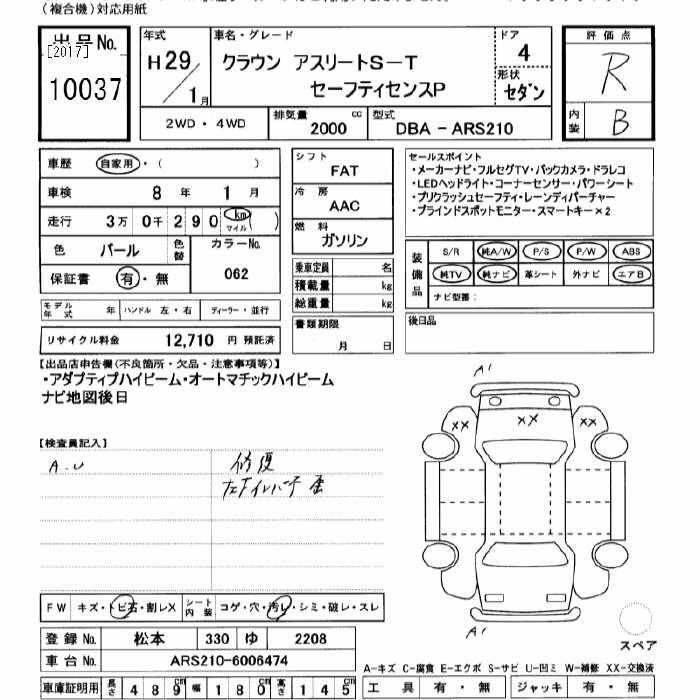 (複合機)対応用紙
出品 No.
[2017]
10037
年式
H29/1月
車名・グレード
クラウン アスリートS-T
セーフティセンスP
ドア
4
形状
セダン
評価点
R
内装
B
2WD・4WD
排気量
2000 cc
型式
DBA-ARS210
車歴 自家用・( )
車検 8年 1月
走行 3万0千290 km マイル ( )
色 パール 色替
カラーNo.
062
保証書 有・無
シフト
FAT
冷房
AAC
燃料
ガソリン
セールスポイント
・メーカーナビ・フルセグTV・バックカメラ・ドラレコ
・LEDヘッドライト・コーナーセンサー・パワーシート
・プリクラッシュセーフティ・レーンディパーチャー
・ブラインドスポットモニター・スマートキー×2
装備品
S/R 純A/W P/S P/W ABS
純TV 純ナビ 革シート 外ナビ エアB
ナビ型番:
乗車定員 名
積載量 kg
総重量 kg
モデル年式 年 ハンドル 左・右 ディーラー・並行
リサイクル料金 12,710 円 預託済
書類期限
月 日
後日品
【出品店申告欄(不良箇所・欠品・注意事項等)】
・アダプティブハイビーム・オートマチックハイビーム
ナビ地図後日
【検査員記入】
A-U
修復
A1
XX
XX
XX
A1
FW キズ・トビ石・割レX シート内装 コゲ・穴・汚レ・シミ・破レ・スレ
登録 No. 松本 330 ゆ 2208
車台 No. ARS210-6006474
車庫証明用 長さ 489cm 幅 180cm 高さ 145cm
スペア
A-キズ C-腐食 E-エクボ S-サビ U-凹ミ W-補修 XX-交換済
工具 有・無 ジャッキ 有・無